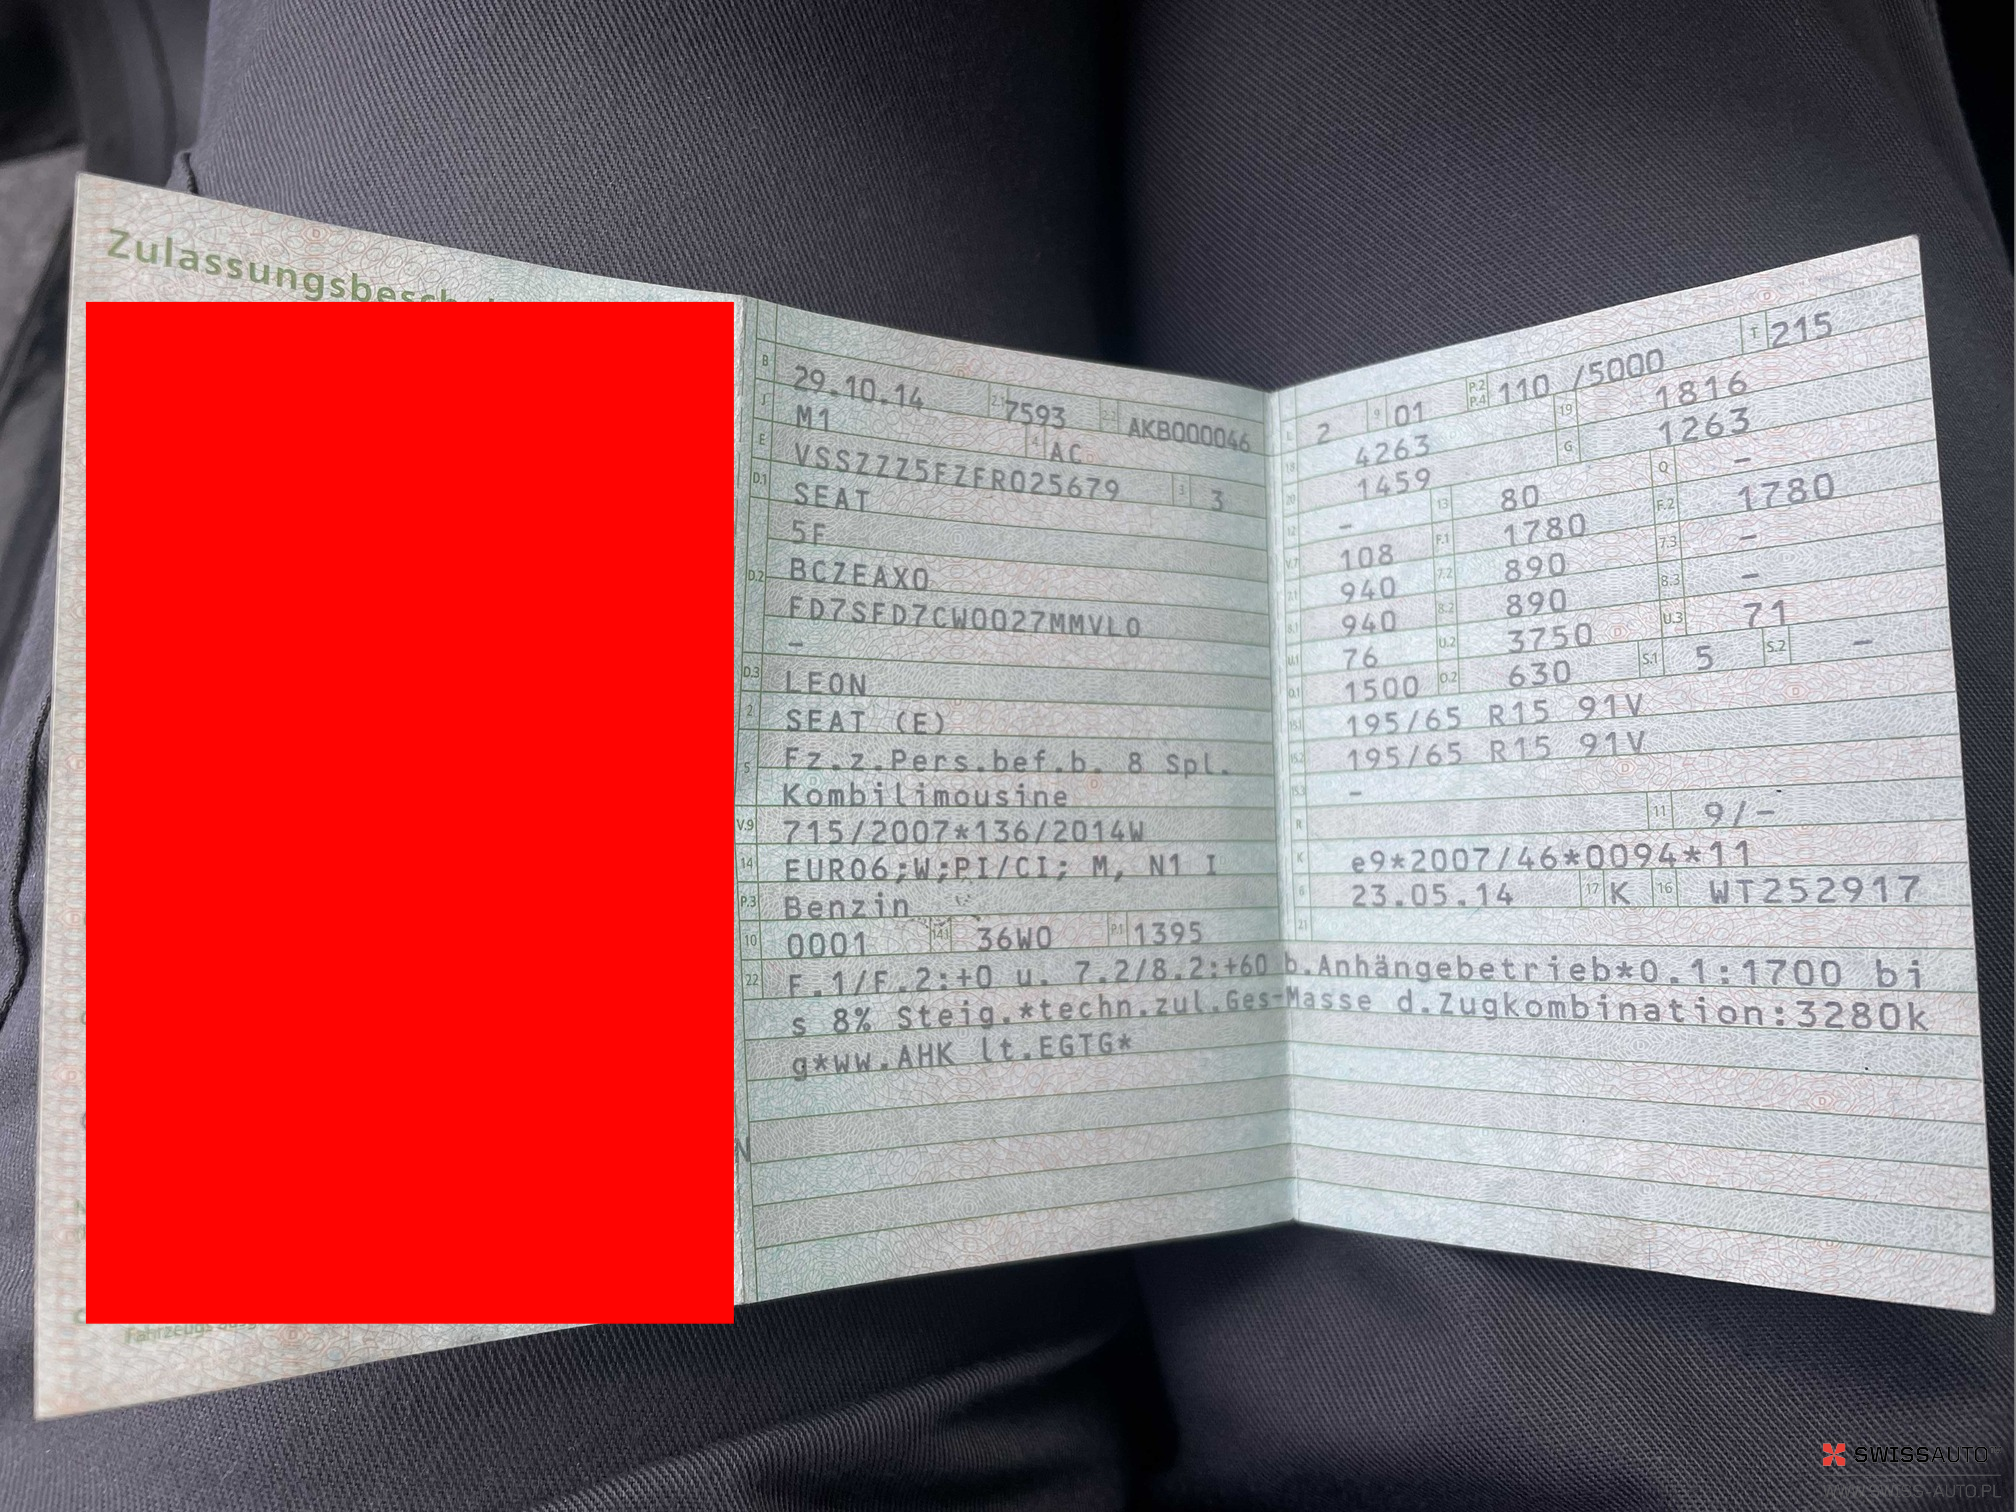 Zulassungsbesch
B 29.10.14 2.1 7593 2.2 AKB000046
J M1 4 AC
E VSSZZZ5FZFR025679 3 3
D.1 SEAT
5F
D.2 BCZEAX0
FD7SFD7CW0027MMVL0
-
D.3 LEON
2 SEAT (E)
5 Fz.z.Pers.bef.b. 8 Spl.
Kombilimousine
V.9 715/2007*136/2014W
14 EURO6;W;PI/CI; M, N1 I
P.3 Benzin
10 0001 14.1 36W0 P.1 1395
L 2 9 01 P.2 P.4 110 /5000 T 215
18 4263 19 1816
20 1459 G 1263
12 - 13 80 Q -
V.7 108 F.1 1780 F.2 1780
7.1 940 7.2 890 7.3 -
8.1 940 8.2 890 8.3 -
U.1 76 U.2 3750 U.3 71
O.1 1500 O.2 630 S.1 5 S.2 -
15.1 195/65 R15 91V
15.2 195/65 R15 91V
15.3 -
R 11 9/-
K e9*2007/46*0094*11
6 23.05.14 17 K 16 WT252917
21
22 F.1/F.2:+0 u. 7.2/8.2:+60 b.Anhängebetrieb*O.1:1700 bi
s 8% Steig.*techn.zul.Ges-Masse d.Zugkombination:3280k
g*ww.AHK lt.EGTG*
N
Fahrzeugs
SWISSAUTO
WWW.SWISS-AUTO.PL